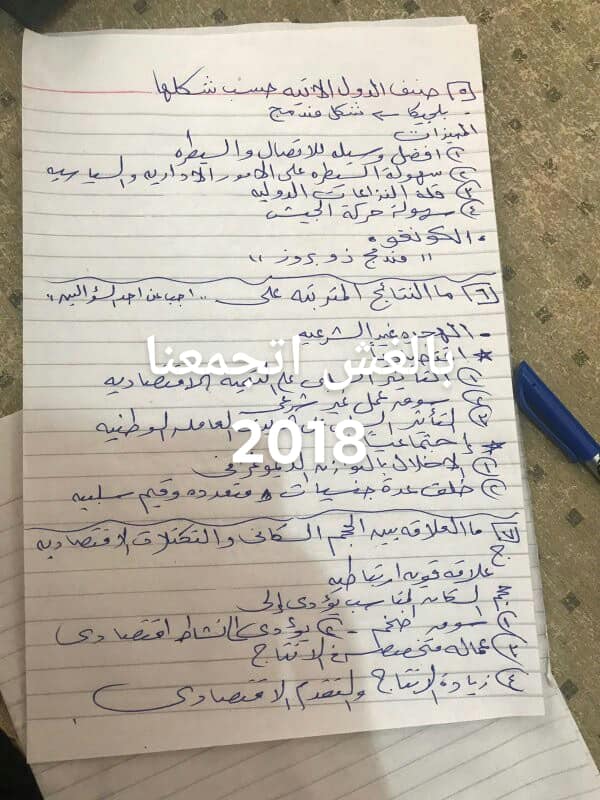 [٥] صنف الدول الاتيه حسب شكلها
- بلجيكا ← شكل مندمج
المميزات
① افضل وسيله للاتصال والسيطره
② سهولة السيطره على الامور الاداريه والسياسيه
③ قلة النزاعات الدوليه
④ سهولة حركة الجيش
• الكونغو •
" مندمج ذو بروز "
[٦] ما النتائج المترتبه على .. اجب عن احد السؤالين "
- الهجره غير الشرعيه
بالغش اتجمعنا
① التنميه الاقتصاديه
② سوق عمل غير شرعى
③ التأثير العامله الوطنيه
2018
* إجتماعيـ
① الاخلال بالتوازن الديموغرافى
② خلق عدة جنسيات متعدده وقيم سلبيه
[٧] ما العلاقه بين الحجم السكانى والتكتلات الاقتصاديه
ج
علاقه قويه ارتباطيه
حجم السكان المناسب يؤدى إلى
① سوق ضخم - ② يؤدى النشاط اقتصادى
③ عماله متخصصه الانتاج
④ زيادة الانتاج والتقدم الاقتصادى